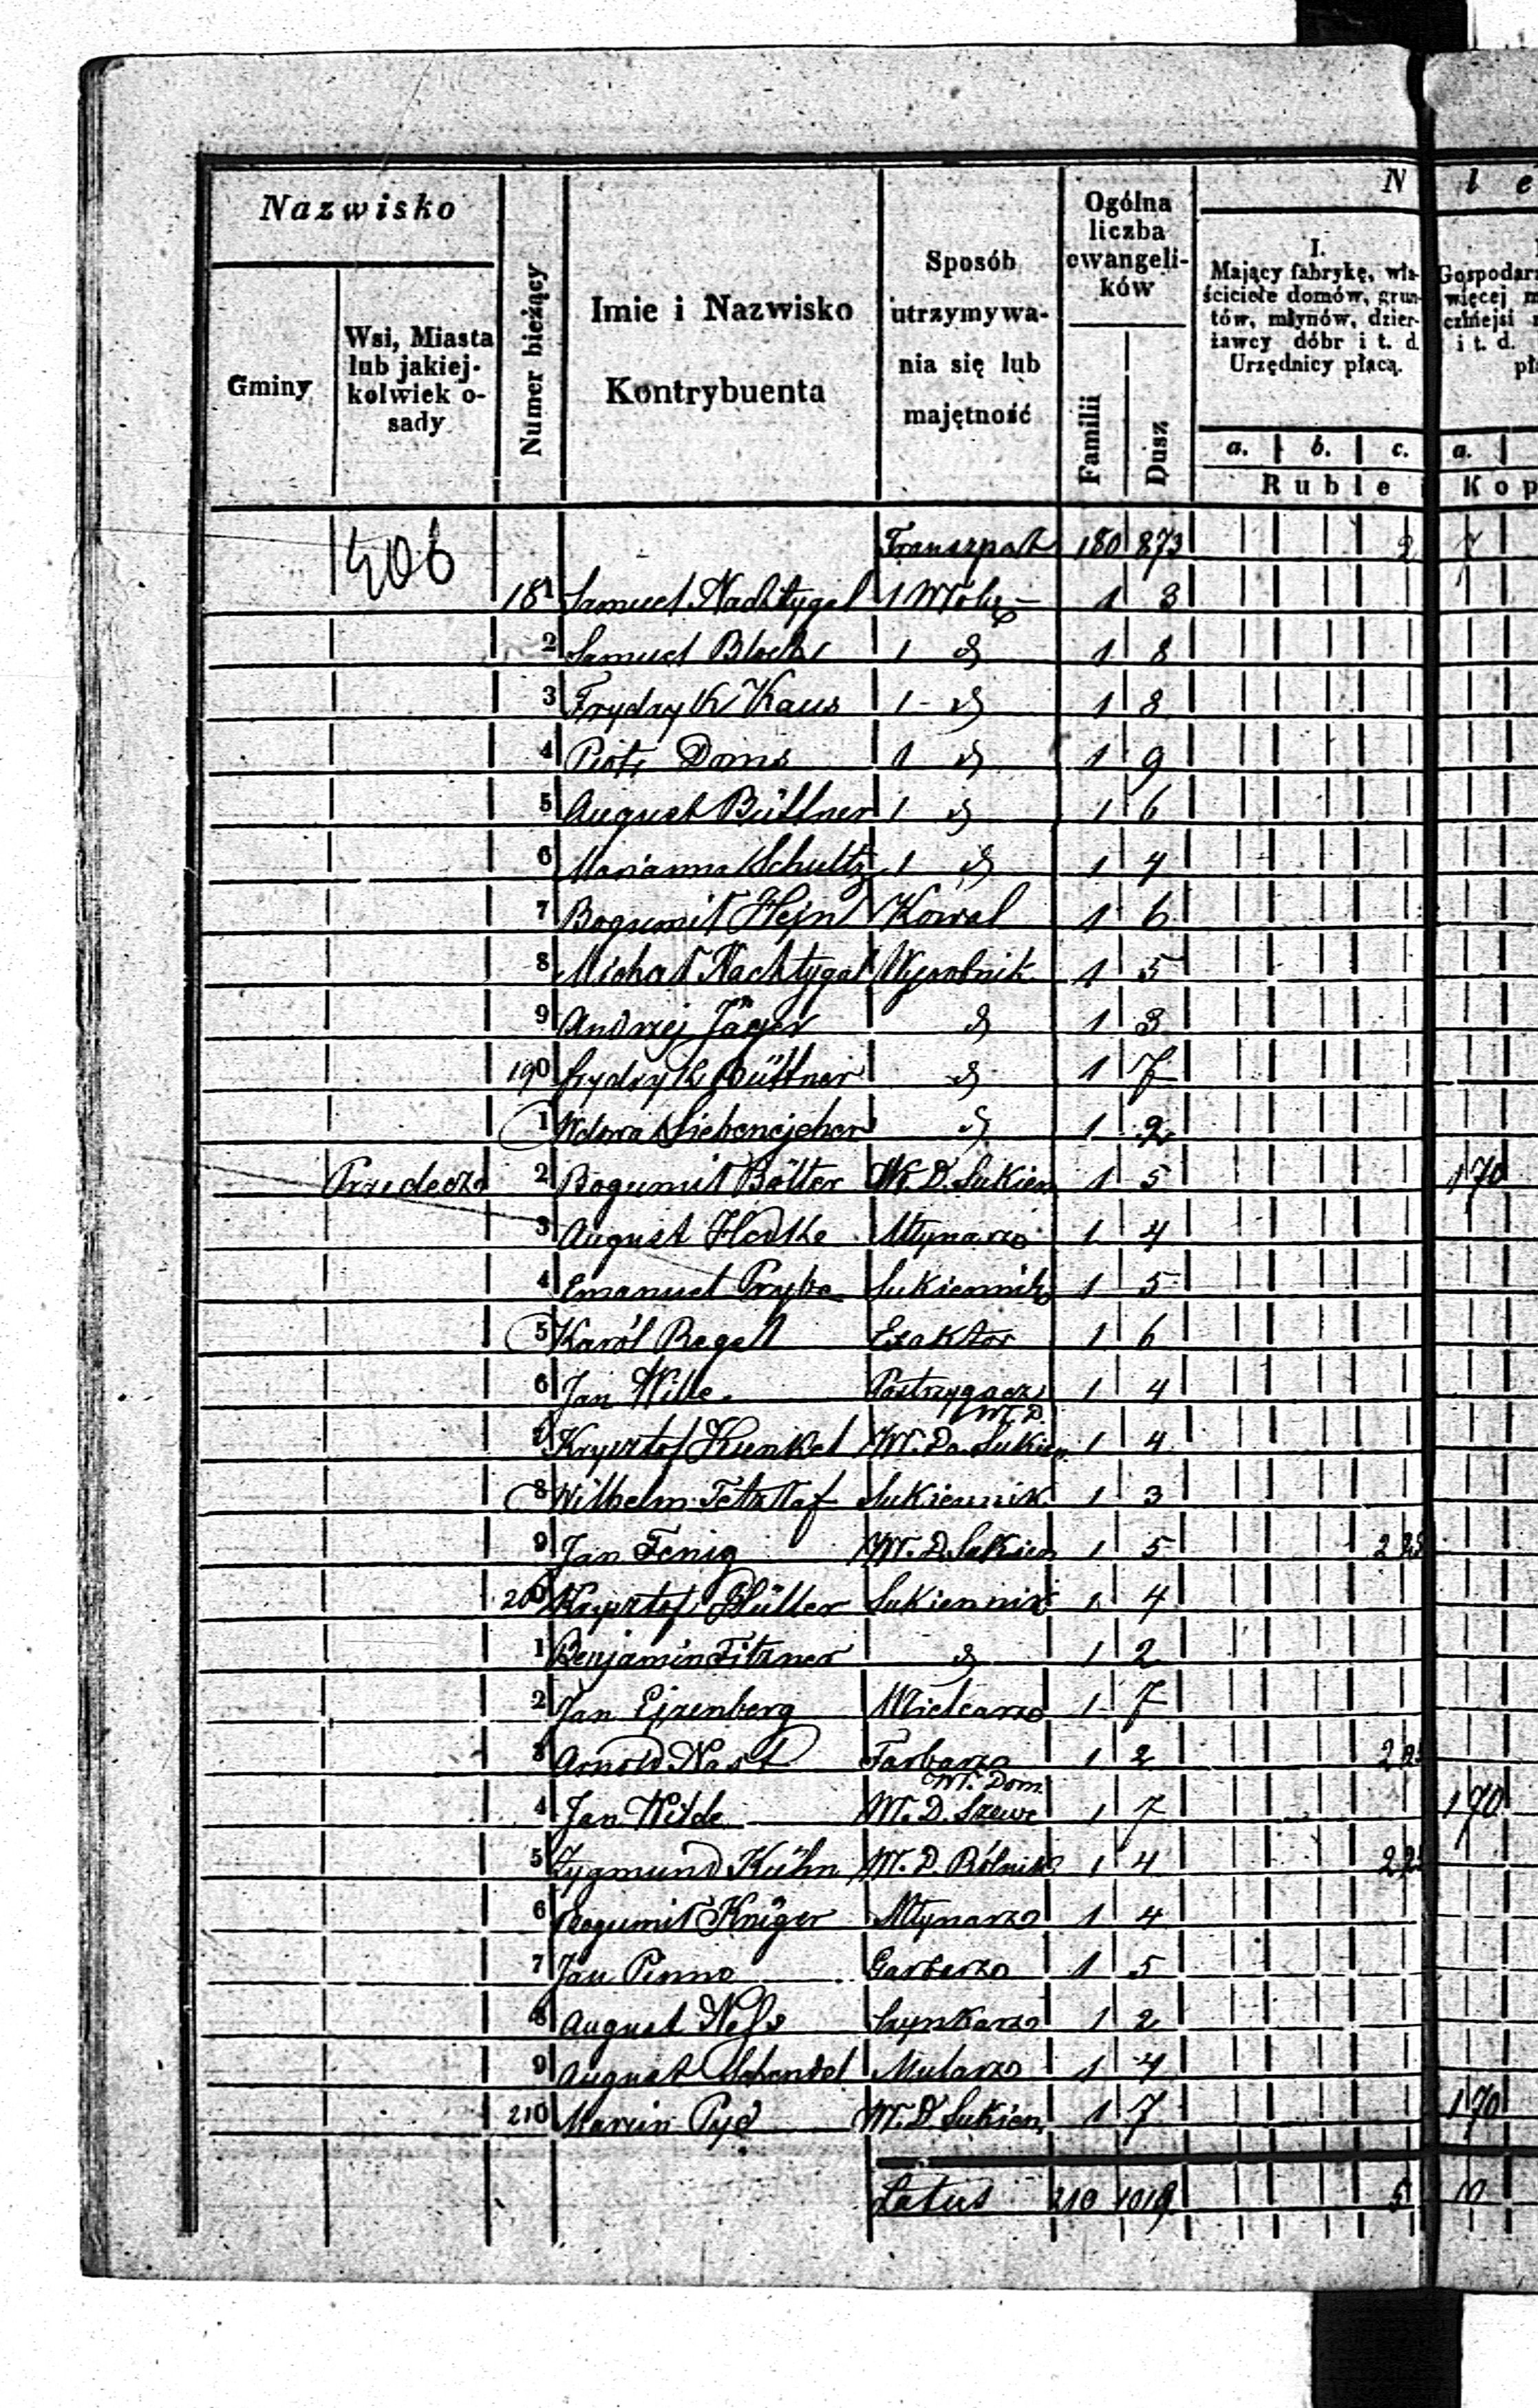 Nazwisko
Gminy
Wsi, Miasta
lub jakiej-
kolwiek o-
sady
Numer bieżący
Imie i Nazwisko
Kontrybuenta
Sposób
utrzymywa-
nia się lub
majętność
Ogólna
liczba
ewangeli-
ków
Familii
Dusz
N
I.
Mający fabrykę, wła-
ściciele domów, grun-
tów, młynów, dzier-
żawcy dóbr i t. d.
Urzędnicy płacą.
a. b. c.
Ruble
l e
Gospodar
więcej m
czniejsi
i t. d.
pł
a.
Kop
406
Transport 180 873
181 Samuel Nachtygal 1 3
2 Samuel Bloch 1 1 8
3 Frydryk Kaus 1 1 8
4 Piotr Doms 1 1 9
5 August Büttner 1 1 6
6 Marianna Schultz 1 1 4
7 Bogumił Hejn Kowal 1 6
8 Michał Nachtygal Wyrobnik 1 5
9 Andrzej Jäger 1 3
190 Frydryk Büttner 1 7
1 Wdowa 1 2
Przedecz 2 Bogumił Bötter W. D. Sukien 1 5 1 70
3 August Młynarz 1 4
4 Emanuel Sukiennik 1 5
5 Karól Regel Exaktor 1 6
6 Jan Wille Postrzygacz 1 4
W. D.
7 Krysztof Kunkel W. D. Sukien. 1 4
8 Wilhelm Tetzlaf Sukiennik 1 3
9 Jan Fenig W. D. Sukien 1 5
200 Krysztof Sukiennik 1 4
1 Benjamin Fitzner 1 2
2 Jan Ejzenberg 1 7
3 Arnold Nast Farbarz 1 2
W. Dom.
4 Jan Wilde W. D. Szewc 1 7 1 70
5 Zygmund Kühn W. D. Rólnik 1 4
6 Bogumił Krüger Młynarz 1 4
7 Jan Pinno Garbarz 1 5
8 August Szynkarz 1 2
9 August Schendel Mularz 1 4
210 Marcin Pyd W. D. Sukien. 1 7 1 70
Latus 210 1019 5